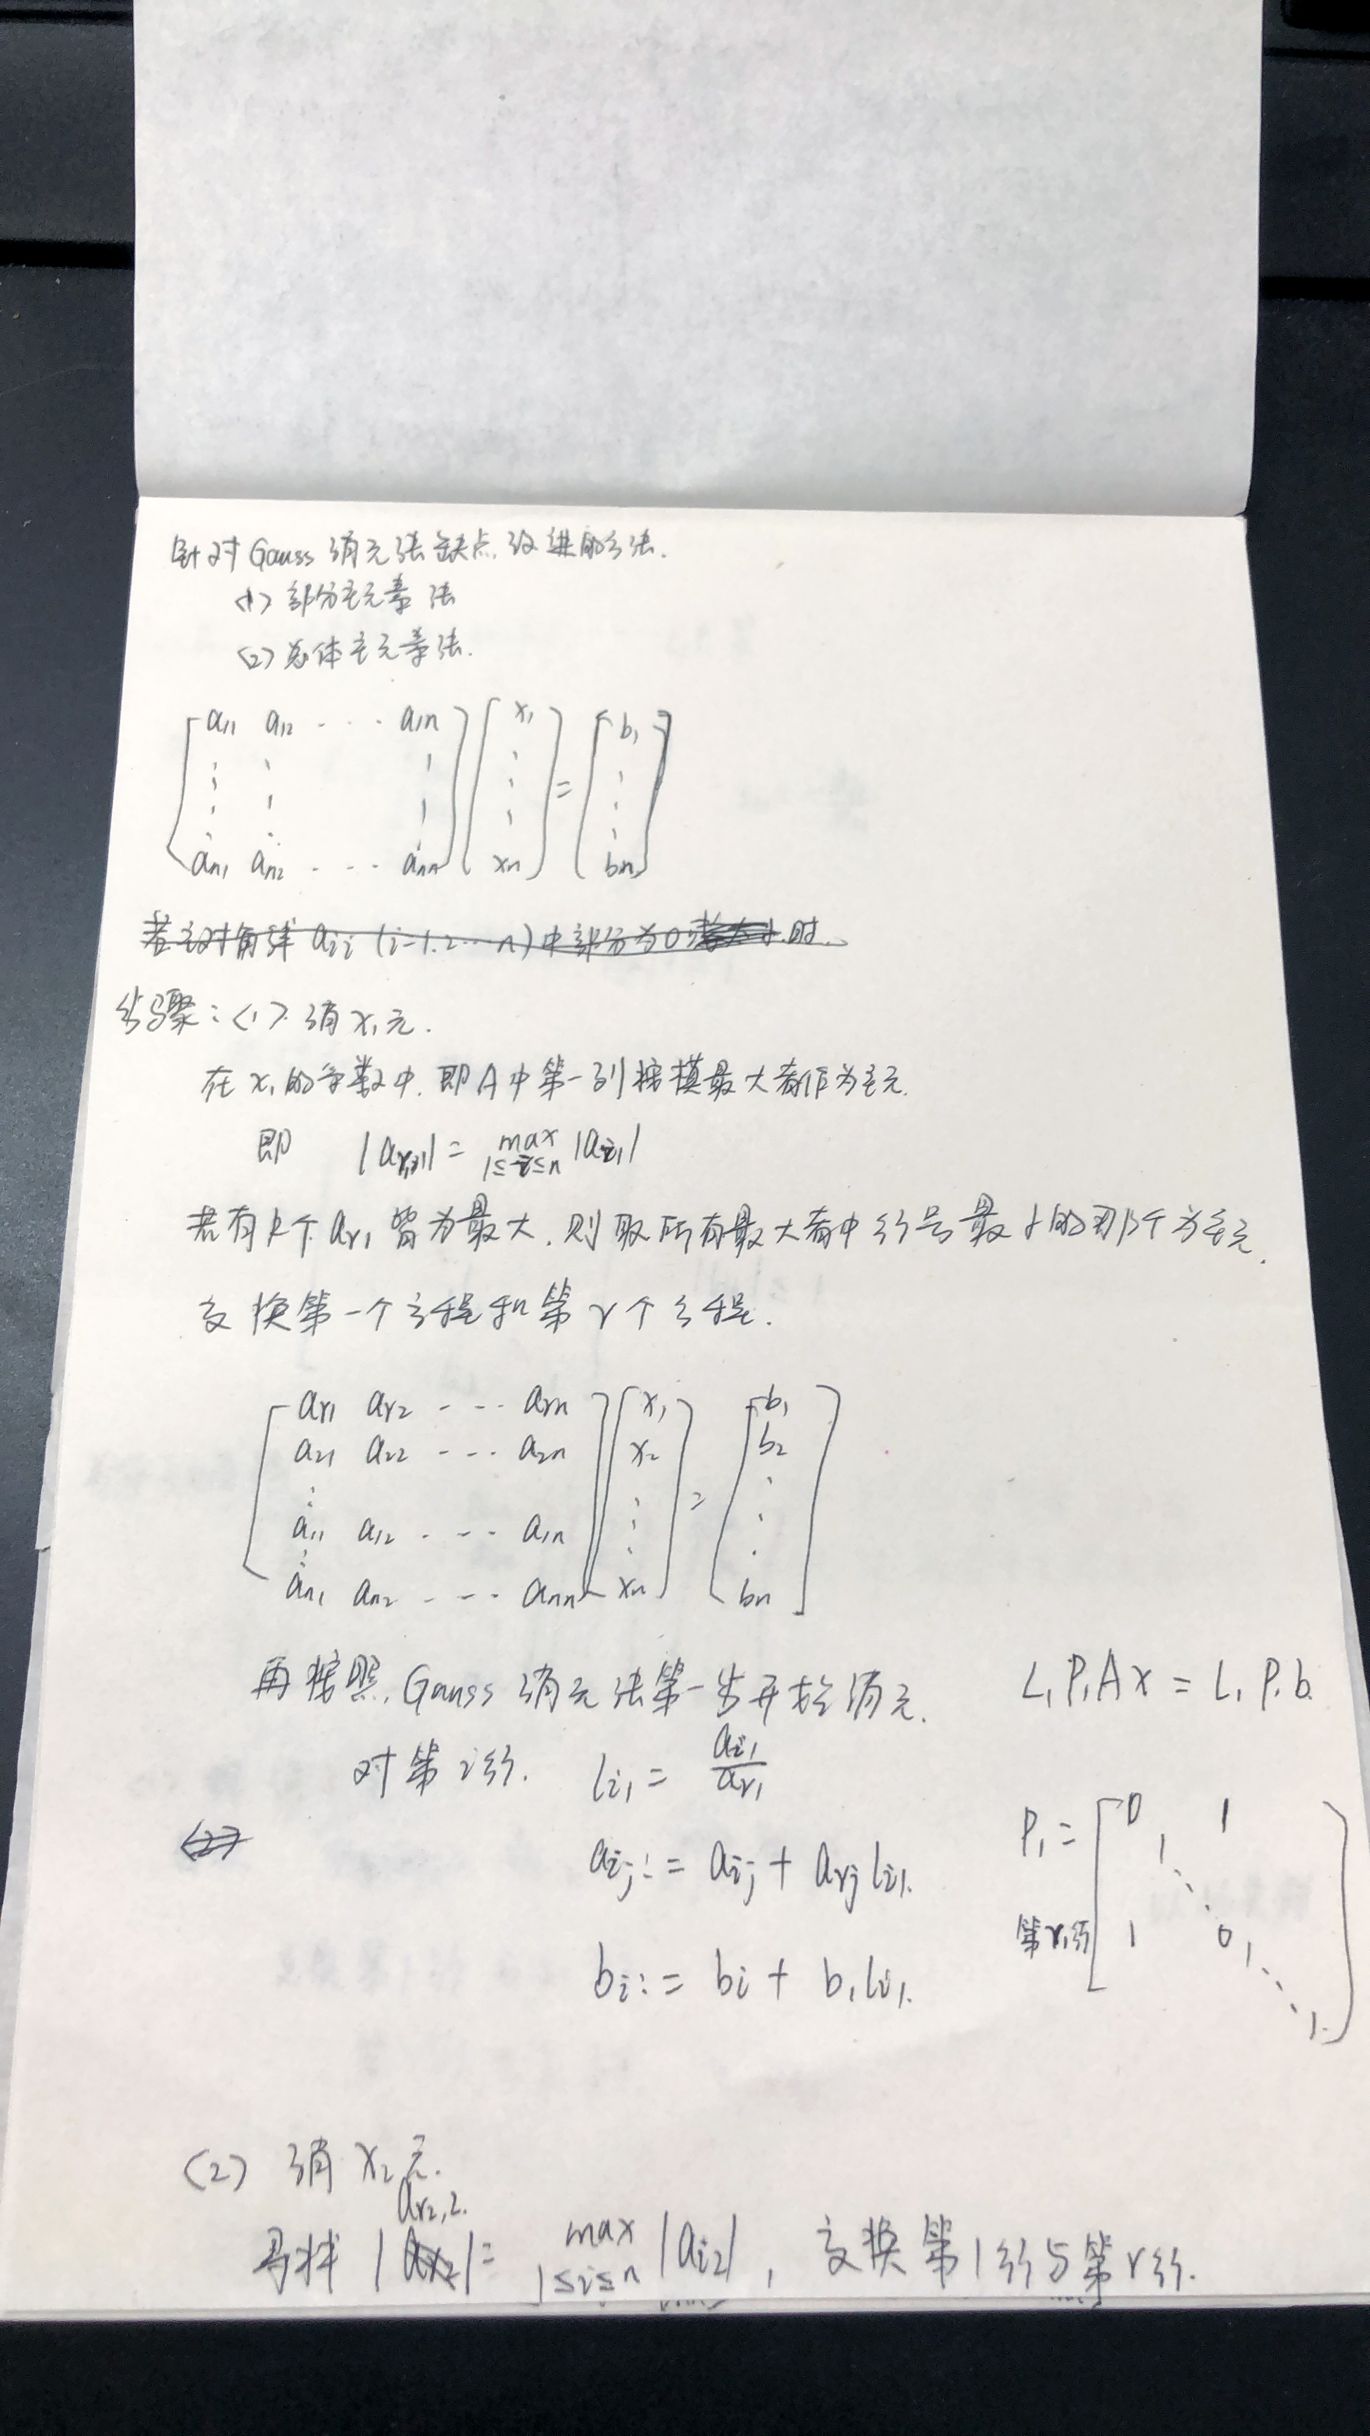 针对Gauss消元法缺点,改进的方法.
<1> 部分主元素法
<2> 总体主元素法.
[ a11 a12 ... a1n ; ⋮ ⋮ ⋮ ; an1 an2 ... ann ] [ x1 ⋮ xn ] = [ b1 ⋮ bn ]
若主对角线 aii (i=1.2...n) 中部分为0 时
步骤:<1>. 消x1元.
在x1的系数中.即A中第一列按模最大者作为主元.
即 |ar1,1| = max 1≤i≤n |ai1|
若有k个ar1皆为最大.则取所有最大者中行号最小的那个为主元.
交换第一个方程和第r个方程.
[ ar1 ar2 ... arn ; a21 a22 ... a2n ; ⋮ ; a11 a12 ... a1n ; ⋮ ; an1 an2 ... ann ] [ x1 x2 ⋮ xn ] = [ b1 b2 ⋮ bn ]
再按照.Gauss消元法第一步开始消元.
L1P1Ax = L1P1b.
对第i行. li1 = ai1/ar1
<2>
aij := aij + arj li1.
bi := bi + b1li1.
P1 = [ 0 1 ; 1 ⋱ ; 1 0 ; 1 ⋱ 1. ]
第r1行
(2) 消x2元.
ar2,2.
寻找 | | = max 1≤i≤n |ai2| , 交换第1行与第r行.